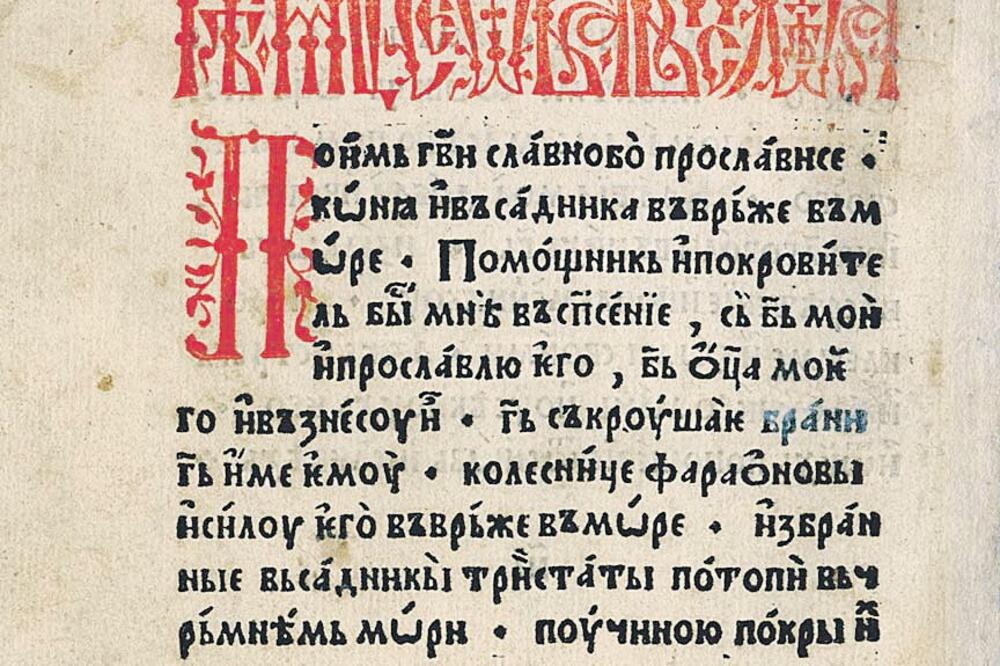 Пои҆мь гв҃и сла́внобо̀ просла́висе ·
кѡ́нꙗ и҆въса́дника въврь́же въм
ѡ́ре · Помо́щникь и҆покрови́те
ль бы́ мнѣ въсп҃се́нїе , сь̀ б҃ь мои҆
и҆просла́влю ѥ҆го , б҃ь ѻ҆ц҃а моѥ҆
го и҆възне́соуи҆ · г҃ь съкроу́шаѥ бра́ни
г҃ь и҆ме ѥ҆моу̀ · колесни́це фараѻ҆новы
и҆си́лоу ѥ҆го̀ въврь́же въмѡ́ре · и҆збра́н
ные вьса́дникы̀ три҆ста́ты по́топѝ вьч
рь́мнѣмь мѡ́ри · поу́чиною по́кры и҆